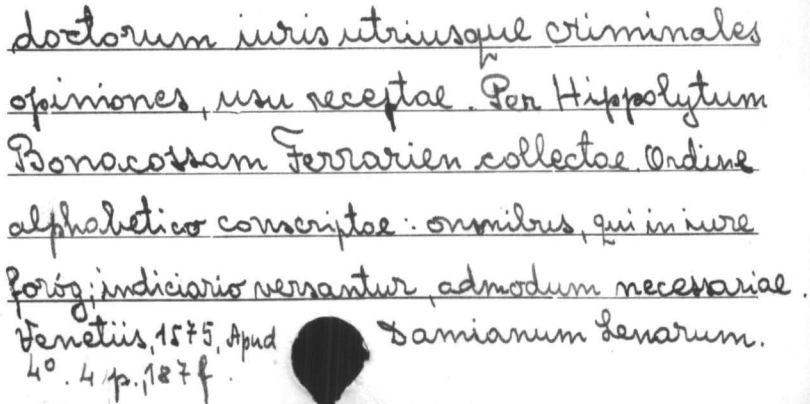 doctorum iuris utriusque criminales
opiniones, usu receptae. Per Hippolytum
Bonacossam Ferrarien collectae. Ordine
alphabetico conscriptae: omnibus, qui in iure
foróq; indiciario versantur, admodum necessariae.
Venetiis, 1575, Apud Damianum Zenarum.
4º. 4 p., 187 f.